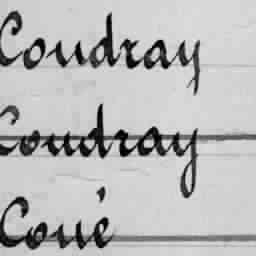 Coudray
Coudray
Coué